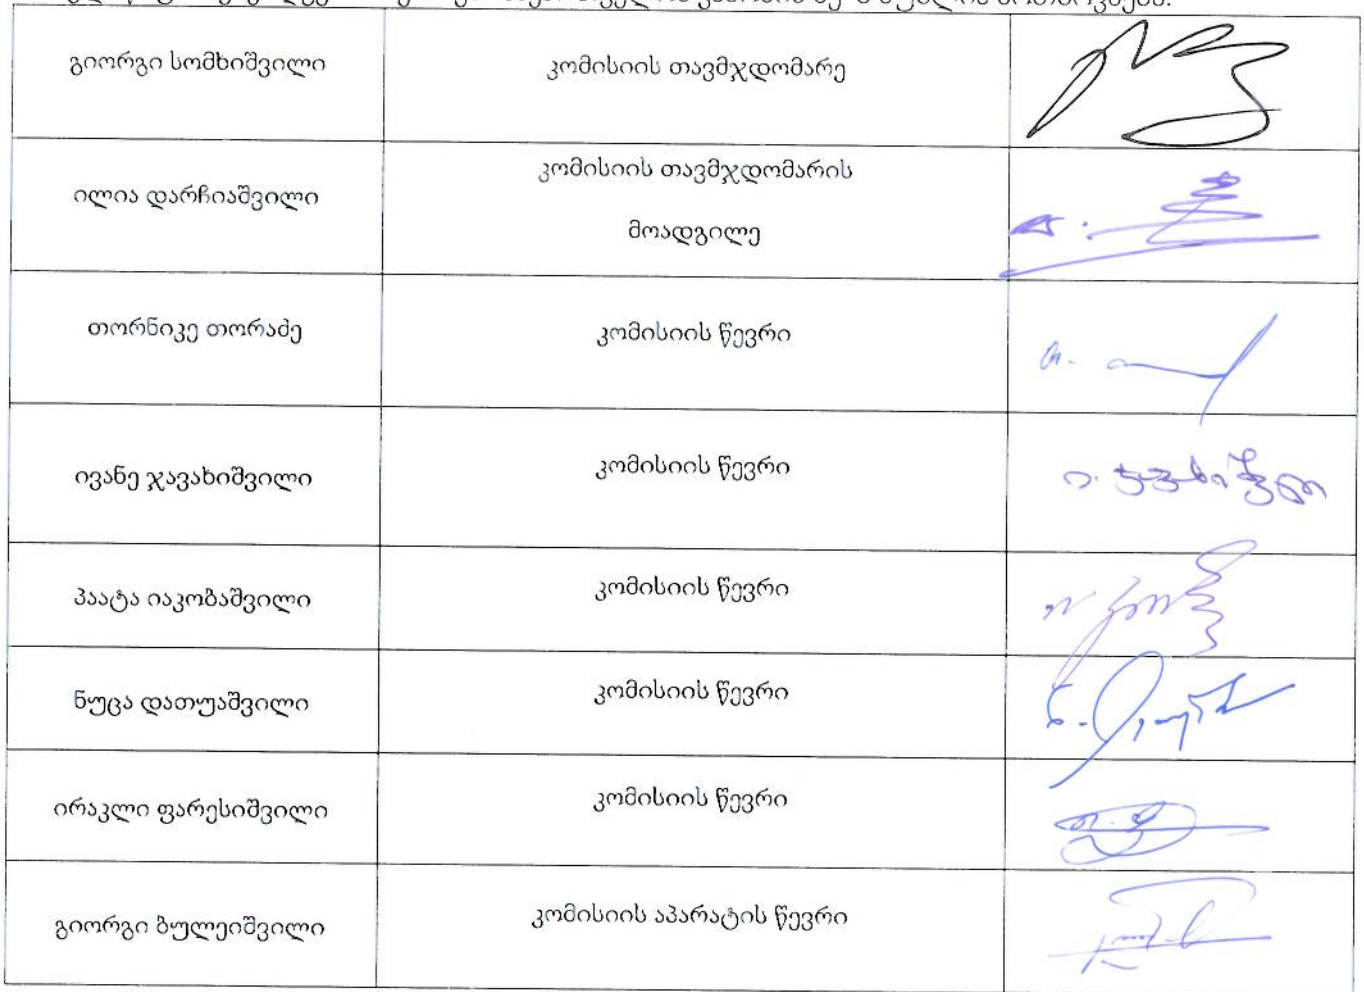 გიორგი სომხიშვილი
კომისიის თავმჯდომარე
ილია დარჩიაშვილი
კომისიის თავმჯდომარის
მოადგილე
თორნიკე თორაძე
კომისიის წევრი
ივანე ჯავახიშვილი
კომისიის წევრი
პაატა იაკობაშვილი
კომისიის წევრი
ნუცა დათუაშვილი
კომისიის წევრი
ირაკლი ფარესიშვილი
კომისიის წევრი
გიორგი ბულეიშვილი
კომისიის აპარატის წევრი